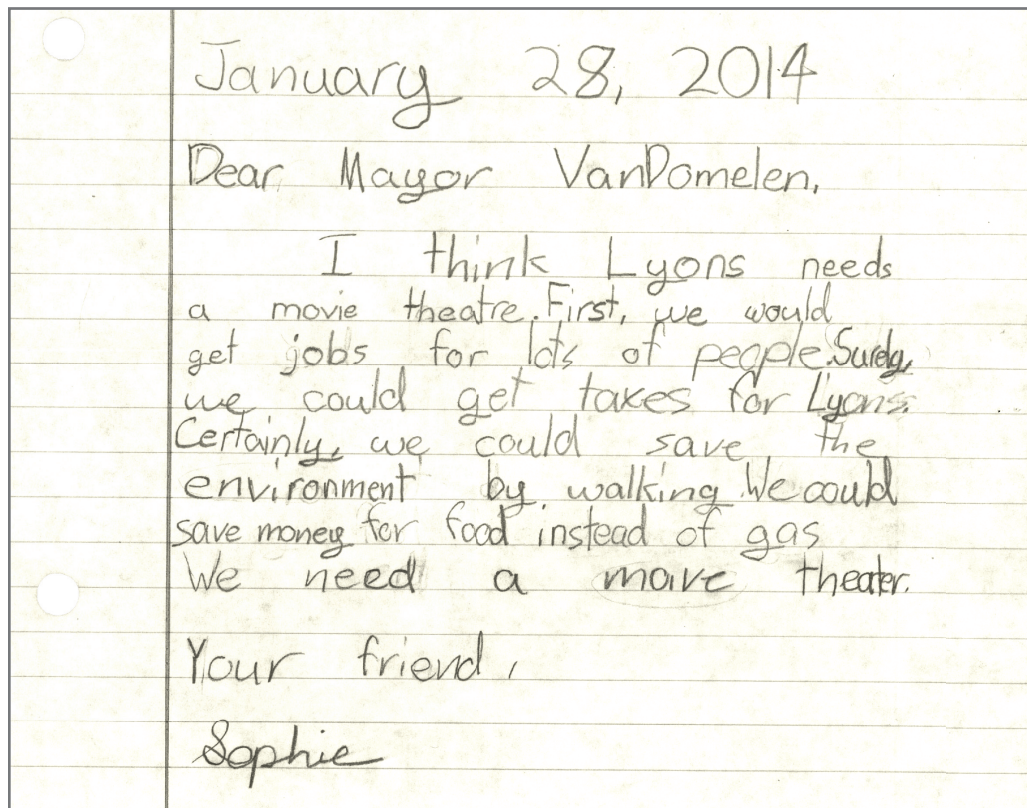 January 28, 2014
Dear Mayor VanDomelen,
I think Lyons needs
a movie theatre. First, we would
get jobs for lots of people. Surely,
we could get taxes for Lyons.
Certainly, we could save the
environment by walking. We could
save money for food instead of gas
We need a moive theater.
Your friend,
Sophie